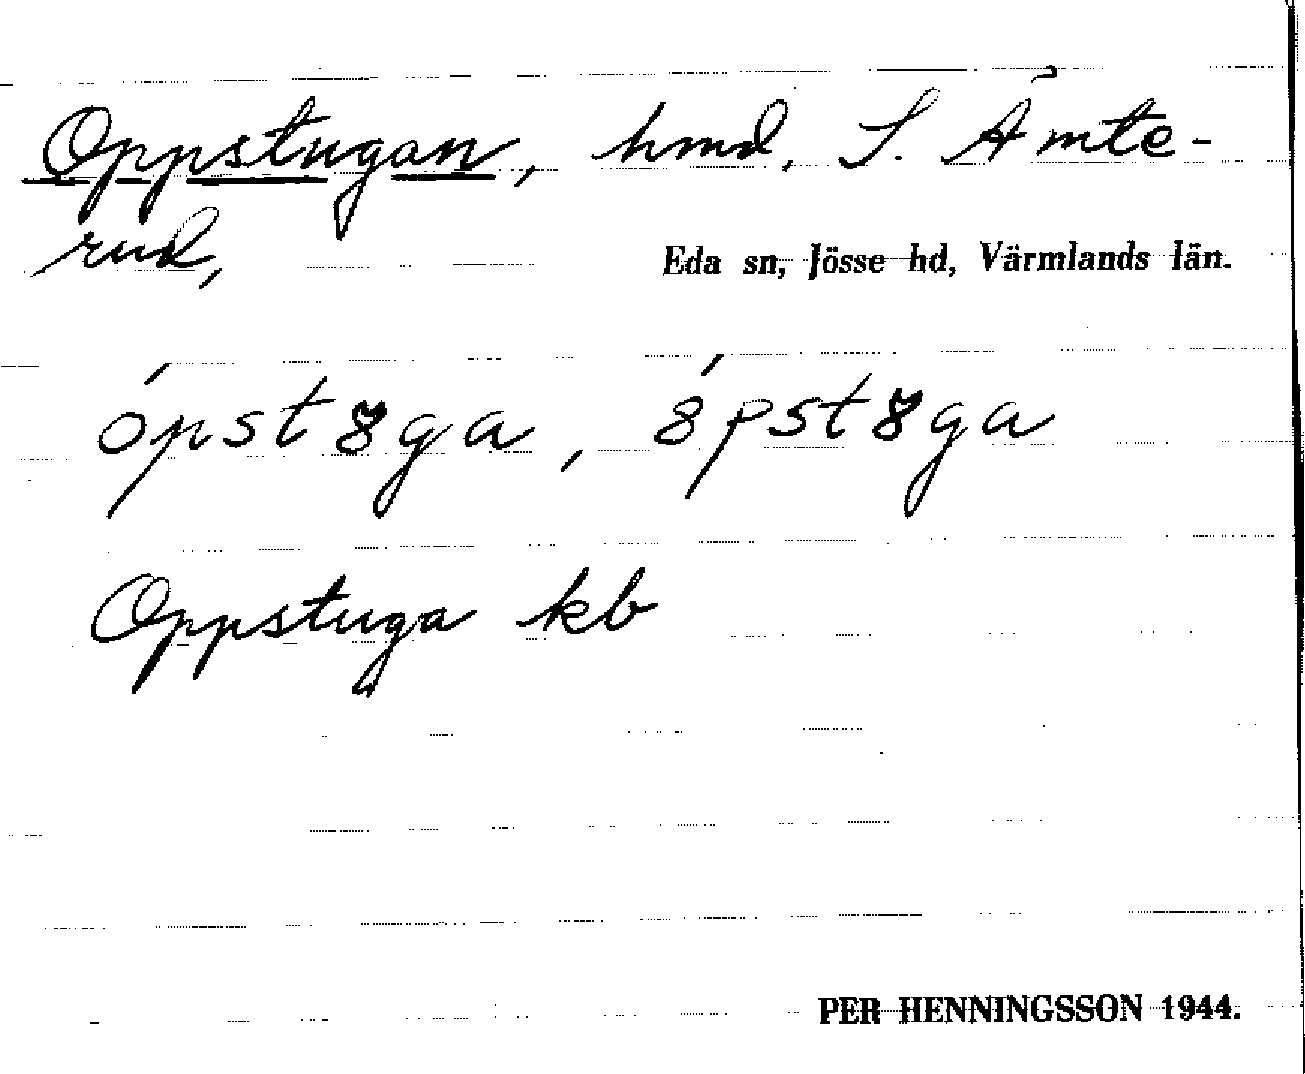 Oppstugan, hmd, S. Åmte-
rud,
Eda sn, Jösse hd, Värmlands län.
ópstȣga, ȣ́pstȣga
Oppstuga kb
PER HENNINGSSON 1944.